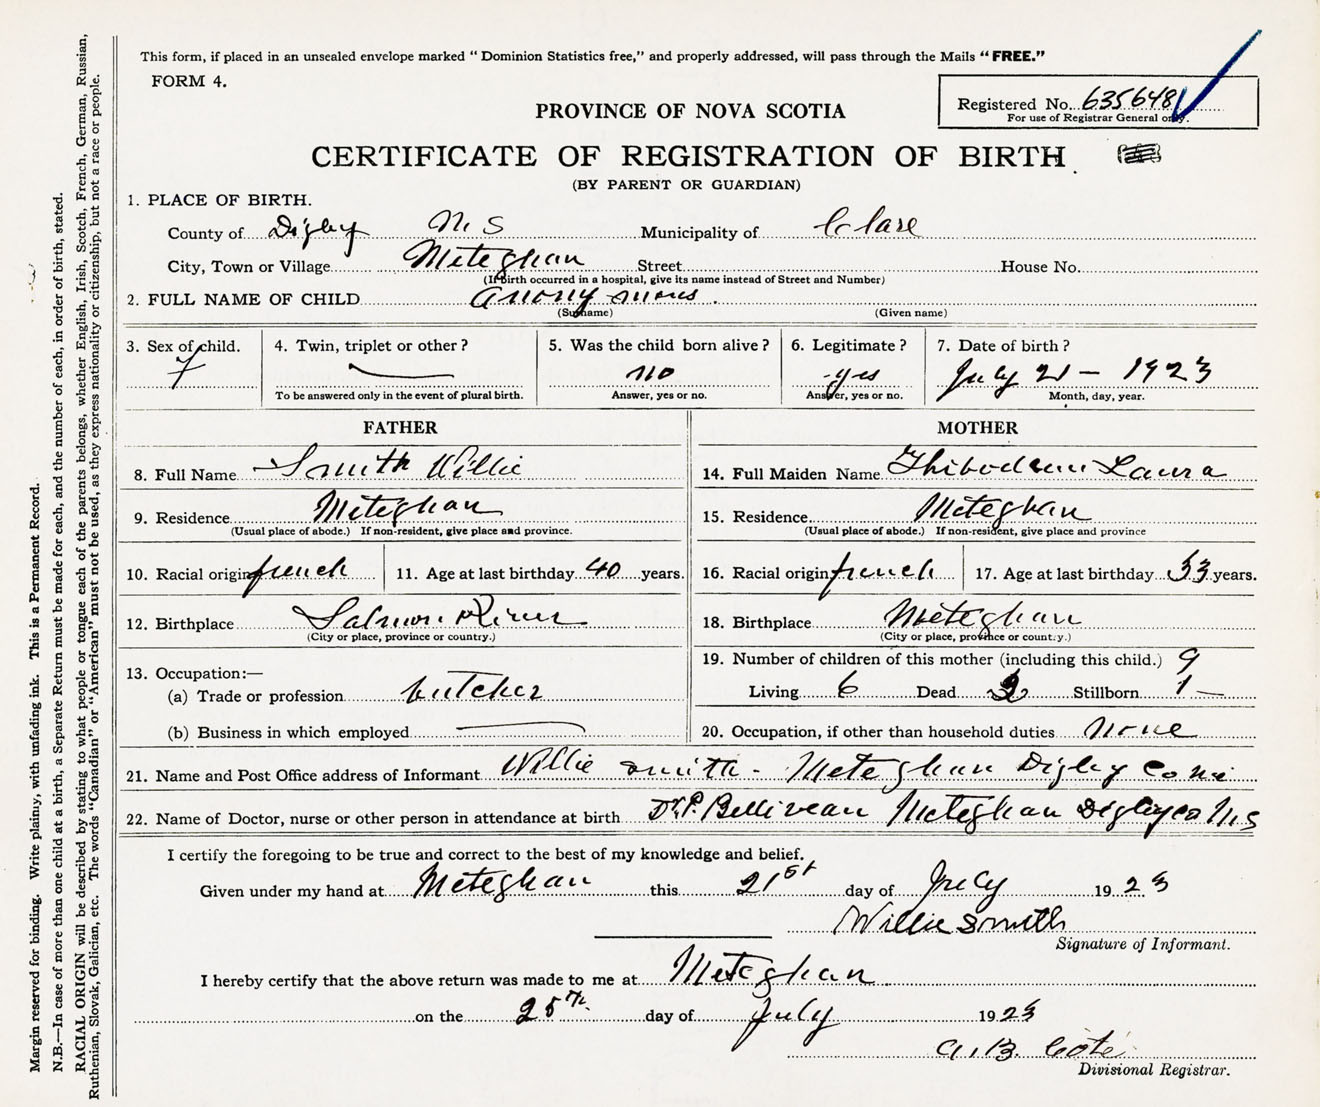 This form, if placed in an unsealed envelope marked "Dominion Statistics free," and properly addressed, will pass through the Mails "FREE."
FORM 4.
Registered No. 635648
For use of Registrar General only.
PROVINCE OF NOVA SCOTIA
CERTIFICATE OF REGISTRATION OF BIRTH
(BY PARENT OR GUARDIAN)
1. PLACE OF BIRTH.
County of Digby N.S Municipality of Clare
City, Town or Village Meteghan Street House No.
(If birth occurred in a hospital, give its name instead of Street and Number)
2. FULL NAME OF CHILD Anonymous.
(Surname) (Given name)
3. Sex of child. 4. Twin, triplet or other? 5. Was the child born alive? 6. Legitimate? 7. Date of birth?
F no yes July 21 - 1923
To be answered only in the event of plural birth. Answer, yes or no. Answer, yes or no. Month, day, year.
FATHER MOTHER
8. Full Name Smith Willie 14. Full Maiden Name Thibodeau Laura
9. Residence Meteghan 15. Residence Meteghan
(Usual place of abode.) If non-resident, give place and province. (Usual place of abode.) If non-resident, give place and province
10. Racial origin french 11. Age at last birthday 40 years. 16. Racial origin french 17. Age at last birthday 33 years.
12. Birthplace Salmon River 18. Birthplace Meteghan
(City or place, province or country.) (City or place, province or country.)
13. Occupation:— 19. Number of children of this mother (including this child.) 9
(a) Trade or profession butcher Living 6 Dead 2 Stillborn 1 —
(b) Business in which employed 20. Occupation, if other than household duties none
21. Name and Post Office address of Informant Willie Smith - Meteghan Digby Co
22. Name of Doctor, nurse or other person in attendance at birth Dr. P. Belliveau Meteghan Digby co N.S
I certify the foregoing to be true and correct to the best of my knowledge and belief.
Given under my hand at Meteghan this 21st day of July 1923
Willie Smith
Signature of Informant.
I hereby certify that the above return was made to me at Meteghan
on the 25th day of July 1923
A.B. Coté
Divisional Registrar.
Margin reserved for binding. Write plainuy, with unfading ink. This is a Permanent Record.
N.B.—In case of more than one child at a birth, a Separate Return must be made for each, and the number of each, in order of birth, stated.
RACIAL ORIGIN will be described by stating to what people or tongue each of the parents belongs, whether English, Irish, Scotch, French, German, Russian,
Ruthenian, Slovak, Galician, etc. The words "Canadian" or "American" must not be used, as they express nationality or citizenship, but not a race or people.